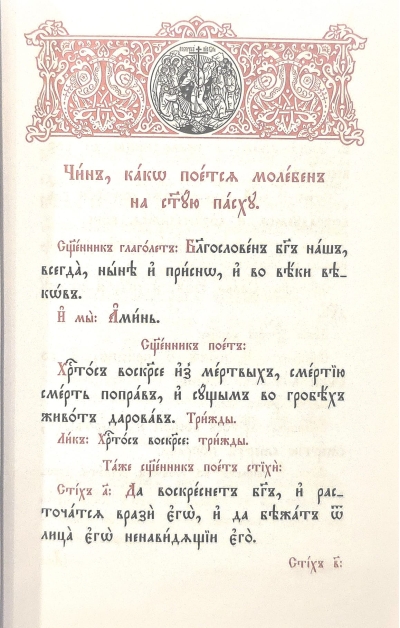 Чи́нъ, ка́кѡ пое́тся моле́бенъ
на ст҃у́ю па́сху.
Сщ҃е́нникъ глаго́летъ: Бл҃гослове́нъ бг҃ъ на́шъ,
всегда̀, ны́нѣ и҆ при́снѡ, и҆ во вѣ́ки вѣ-
кѡ́въ.
И҆ мы̀: А҆ми́нь.
Сщ҃е́нникъ пое́тъ:
Хрⷭ҇то́съ воскр҃се и҆з̾ ме́ртвыхъ, сме́ртїю
сме́рть попра́въ, и҆ су́щымъ во гробѣ́хъ
живо́тъ дарова́въ. Три́жды.
Ли́къ: Хрⷭ҇то́съ воскр҃се: три́жды.
Та́же сщ҃е́нникъ пое́тъ стїхѝ:
Сті́хъ а҃: Да воскре́снетъ бг҃ъ, и҆ рас-
точа́тся вразѝ є҆гѡ̀, и҆ да бѣжа́тъ ѿ
лица̀ є҆гѡ̀ ненави́дѧщїи є҆го̀.
Сті́хъ в҃: